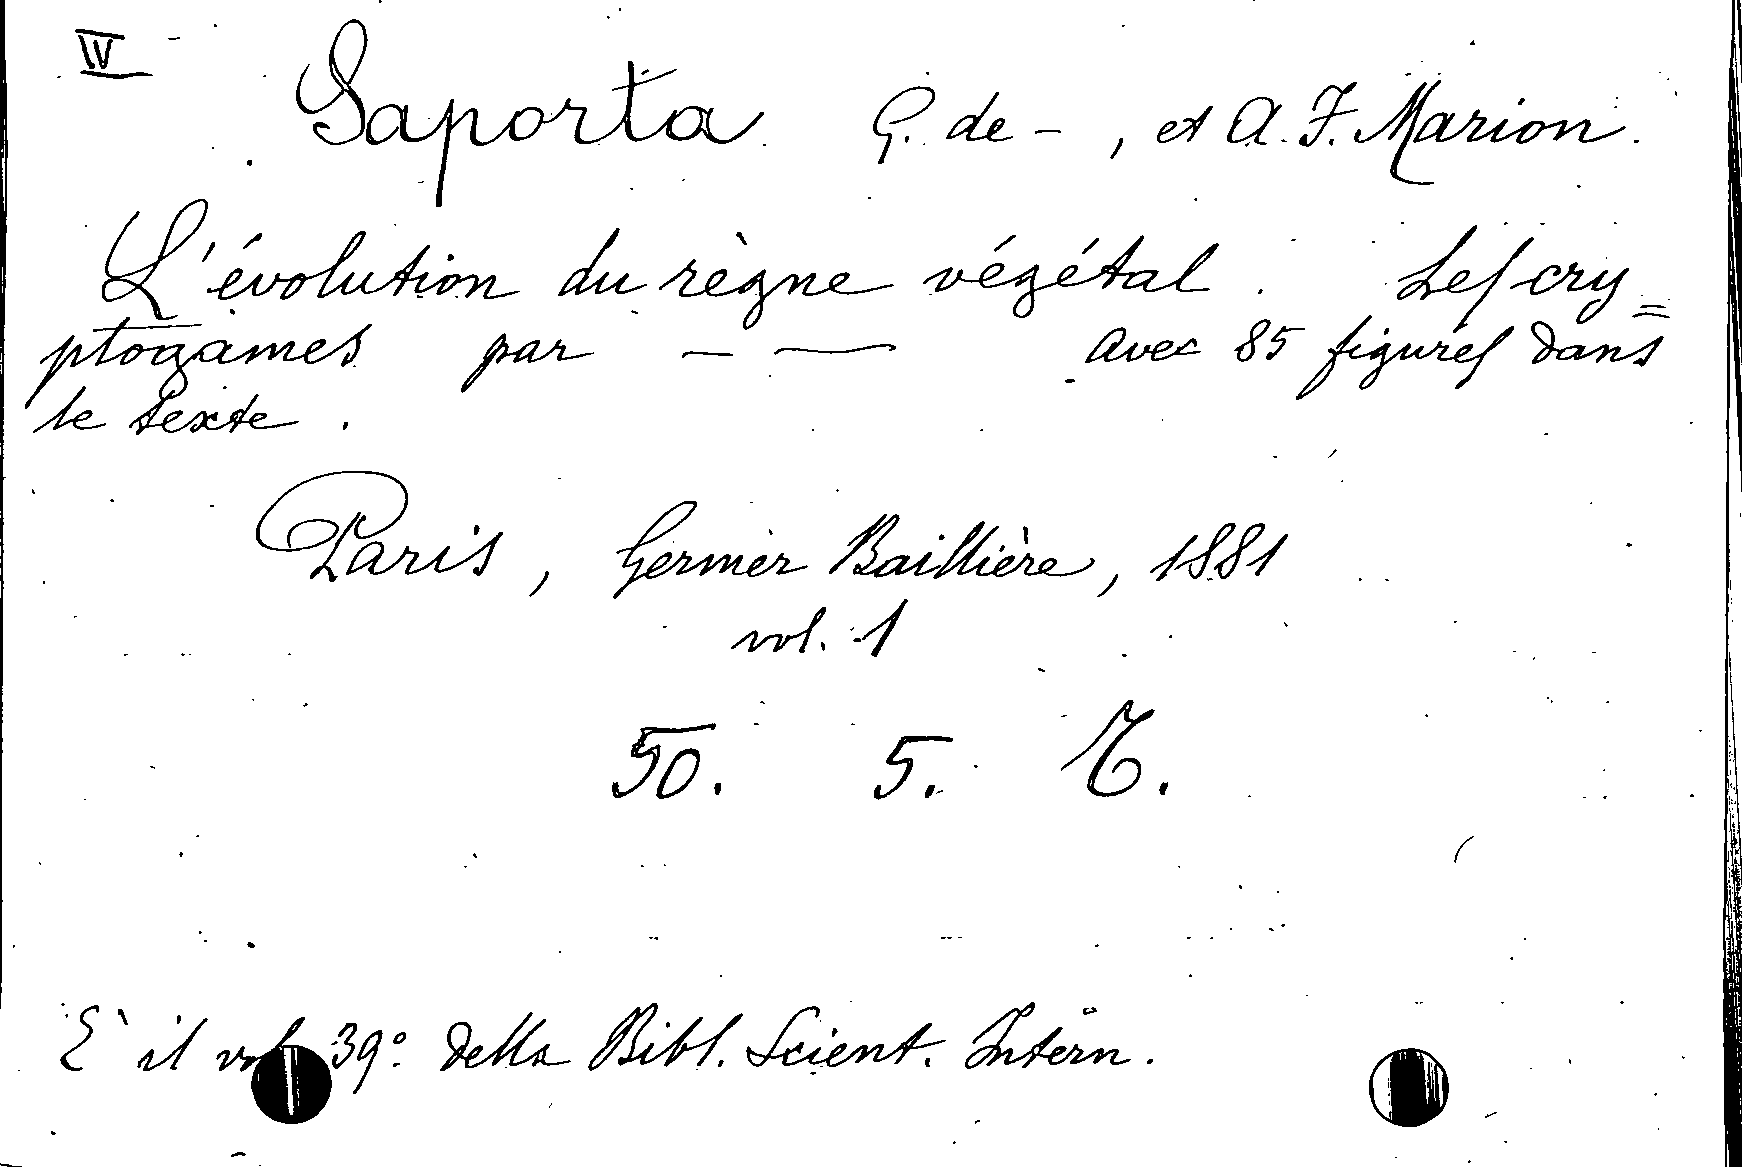 IV
Saporta G. de - , et A. F. Marion.
L'évolution du règne végétal. Les cry=
ptogames par — — avec 85 figures dans
le texte.
Paris, Germer Baillière, 1881
vol. 1
50. 5. T.
E' il vol 39° della Bibl. Scient. Intern.